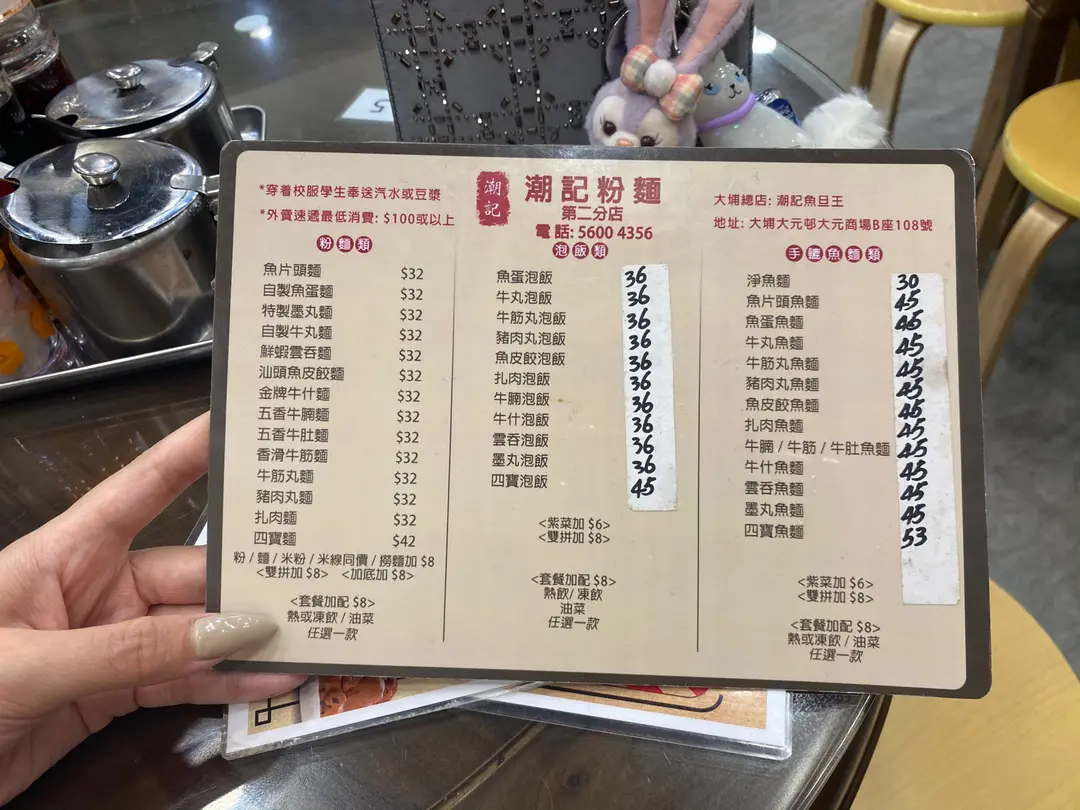 *穿着校服學生奉送汽水或豆漿
*外賣速遞最低消費: $100或以上
潮記
潮記粉麵
第二分店
電話: 5600 4356
大埔總店: 潮記魚旦王
地址: 大埔大元邨大元商場B座108號
粉麵類
魚片頭麵 $32
自製魚蛋麵 $32
特製墨丸麵 $32
自製牛丸麵 $32
鮮蝦雲吞麵 $32
汕頭魚皮餃麵 $32
金牌牛什麵 $32
五香牛腩麵 $32
五香牛肚麵 $32
香滑牛筋麵 $32
牛筋丸麵 $32
豬肉丸麵 $32
扎肉麵 $32
四寶麵 $42
粉 / 麵 / 米粉 / 米線同價 / 撈麵加 $8
<雙拼加 $8> <加底加 $8>
<套餐加配 $8>
熱或凍飲 / 油菜
任選一款
泡飯類
魚蛋泡飯 36
牛丸泡飯 36
牛筋丸泡飯 36
豬肉丸泡飯 36
魚皮餃泡飯 36
扎肉泡飯 36
牛腩泡飯 36
牛什泡飯 36
雲吞泡飯 36
墨丸泡飯 36
四寶泡飯 45
<紫菜加 $6>
<雙拼加 $8>
<套餐加配 $8>
熱飲 / 凍飲
油菜
任選一款
手轆魚麵類
淨魚麵 30
魚片頭魚麵 45
魚蛋魚麵 45
牛丸魚麵 45
牛筋丸魚麵 45
豬肉丸魚麵 45
魚皮餃魚麵 45
扎肉魚麵 45
牛腩 / 牛筋 / 牛肚魚麵 45
牛什魚麵 45
雲吞魚麵 45
墨丸魚麵 45
四寶魚麵 53
<紫菜加 $6>
<雙拼加 $8>
<套餐加配 $8>
熱或凍飲 / 油菜
任選一款
5